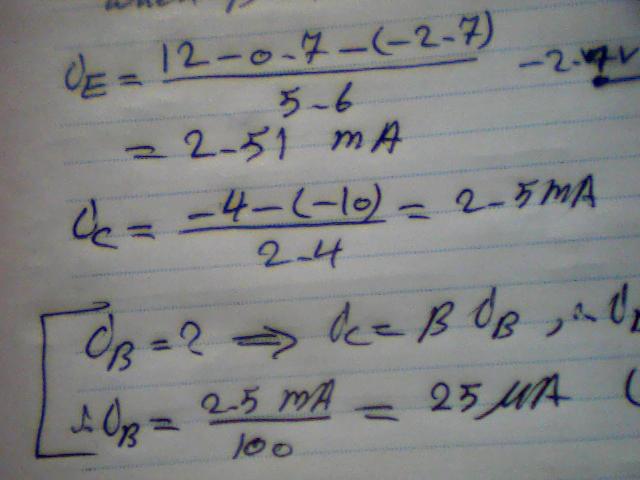 i_E = (12-0.7-(-2.7))/5.6 -2.7V
= 2.51 mA
i_C = (-4-(-10))/2.4 = 2.5mA
i_B = ? ⟹ i_C = β i_B , ∴ i_B
∴ i_B = (2.5 mA)/100 = 25 μA (